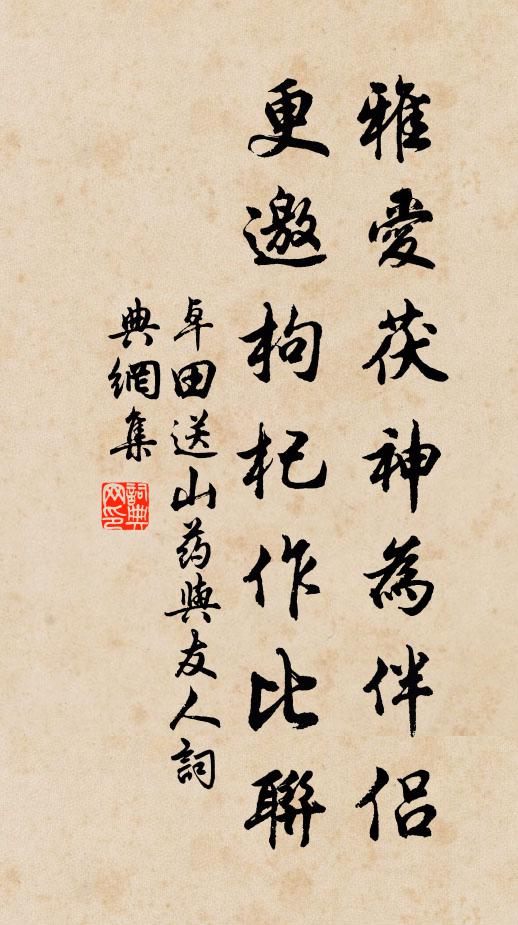 雅愛茯神為伴侣
更邀枸杞作比聯
卓田送山药與友人詞
典網集
詞典
网印